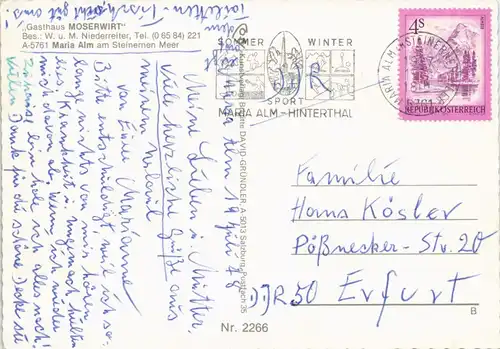 "Gasthaus MOSERWIRT"
Bes.: W. u. M. Niederreiter, Tel. (0 65 84) 221
A-5761 Maria Alm am Steinernen Meer
Maria Alm 19. Juli 78
Meine Lieben u. Mutter,
viele herzliche Grüße aus
meinem Urlaub
von Eure Marianne
Bitte entschuldigt weil ich so
lange nichts von mir hören
ließ, Krankheit u. hielten
mich davon ab, wenn ich wieder
bin hole ich alles nach!
Vielen Dank für die schöne Decke
SOMMER WINTER
SPORT
MARIA ALM-HINTERTHAL
MARIA ALM AM STEINERNEN MEER
5761
4S
REPUBLIK ÖSTERREICH
DAVID-GRÜNDLER, A-5013 Salzburg, Postfach 35
Familie
Hans Kösler
Pößnecker-Str. 20
DDR 50 Erfurt
Nr. 2266
B